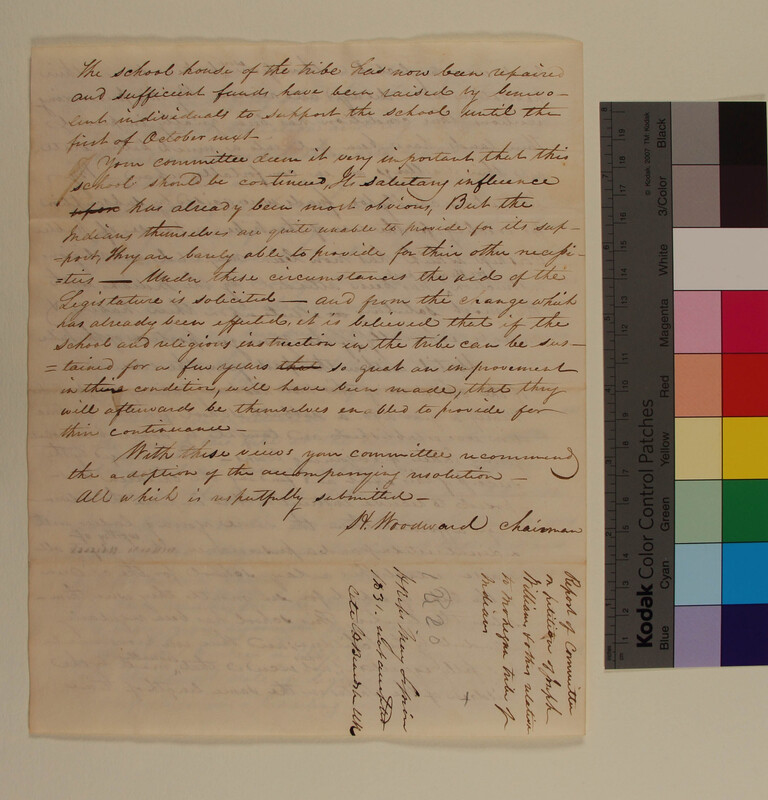 The school house of the tribe has now been repaired
and sufficient funds have been raised by benevo-
lent individuals to support the school until the
first of October next
Your committee deem it very important that this
school should be continued, Its salutary influence
upon has already been most obvious, But the
Indians themselves are quite unable to provide for its sup-
-port, they are barely able to provide for their other necessi-
=ties — Under these circumstances the aid of the
Legislature is solicited — and from the change which
has already been effected, it is believed that if the
school and religious instruction in the tribe can be sus-
=tained for a few years that so great an improvement
in their condition, will have been made, that they
will afterwards be themselves enabled to provide for
their continuance —
With these views your committee recommend
the adoption of the accompanying resolution —
All which is respectfully submitted —
H. Woodward Chairman
Report of Committee
on petition of Joseph
Williams & others relative
to Mohegan tribe of
Indians
H Reps May Session
1831.
Kodak Color Control Patches
© Kodak, 2007 TM: Kodak
Blue
Cyan
Green
Yellow
Red
Magenta
White
3/Color
Black